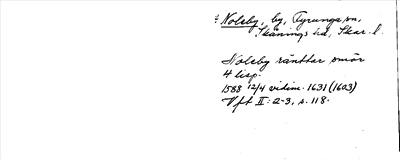 Nolsby, by, Tyrunga sn,
Skånings hd, Skar. l.
Nolsby ränttar smör
4 lisp.
1588 12/4 vidim. 1631 (1603)
Vft II: 2-3, s. 118.